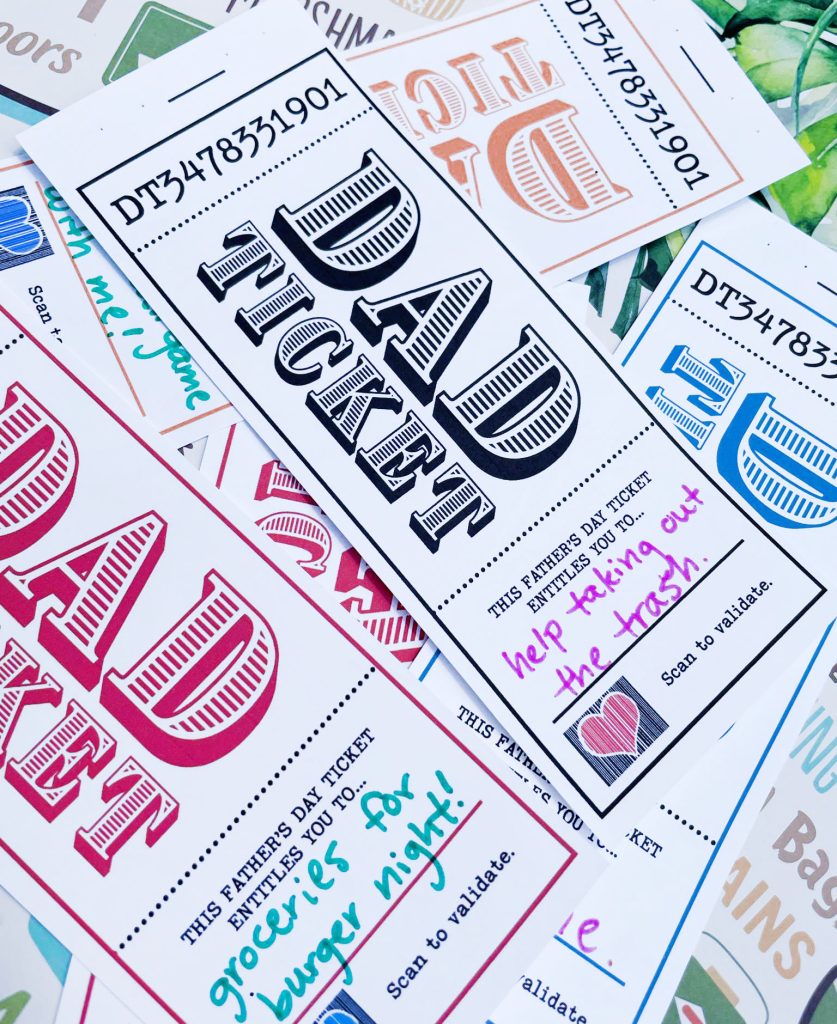 DT3478331901
DAD
TICKET
THIS FATHER'S DAY TICKET
ENTITLES YOU TO...
help taking out
the trash.
Scan to validate.
DT3478331901
DT34783
Scan to
with me!
game
DAD
KET
THIS FATHER'S DAY TICKET
ENTITLES YOU TO...
groceries for
burger night!
Scan to validate.
THIS FATHER'S
oors
Bag
AINS